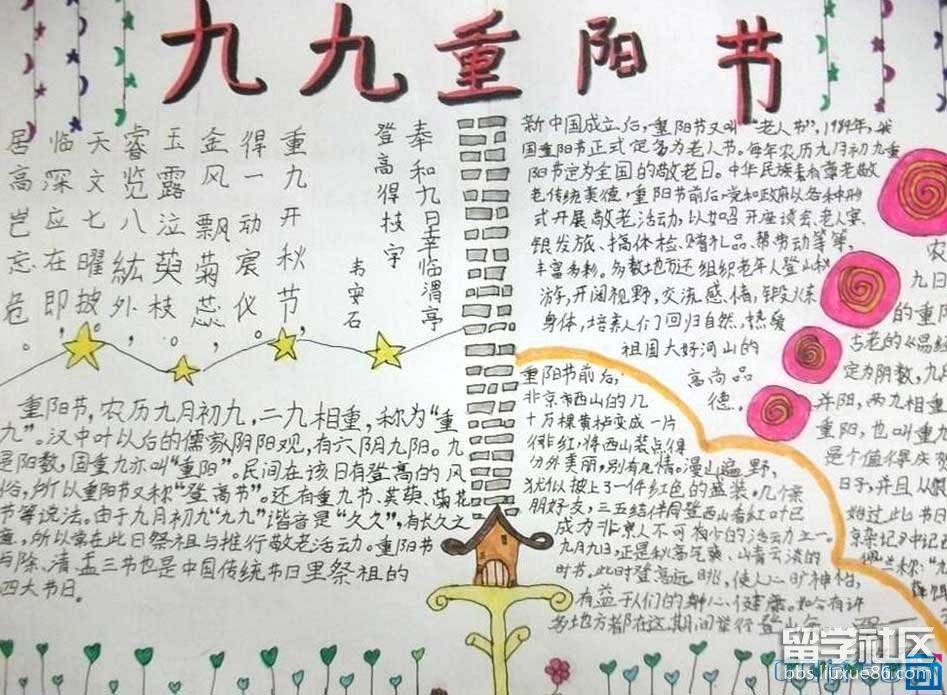 九九重阳节
奉和九日幸临渭亭
登高得枝宇
韦安石
重九开秋节,
得一动宸仪。
金风飘菊蕊,
玉露泣萸枝。
睿览八紘外,
天文七曜披。
临深应在即,
居高岂忘危。
重阳节,农历九月初九,二九相重,称为“重
九”。汉中叶以后的儒家阴阳观,有六阴九阳。九
是阳数,固重九亦叫“重阳”。民间在该日有登高的风
俗,所以重阳节又称“登高节”。还有重九节、茱萸、菊花
节等说法。由于九月初九“九九”谐音是“久久”,有长久之
意,所以常在此日祭祖与推行敬老活动。重阳节
与除、清、盂三节也是中国传统节日里祭祖的
四大节日。
新中国成立后,重阳节又叫“老人节”,1989年,我
国重阳节正式定为老人节。每年农历九月初九重
阳节定为全国的敬老日。中华民族素有尊老敬
老传统美德,重阳节前后,党和政府以各种形
式开展敬老活动,以如召开座谈会、老人宴、
银发旅、搞体检、赠礼品、帮劳动等等,
丰富多彩。多数地方还组织老年人登山秋
游,开阔视野,交流感情,锻炼
身体,培养人们回归自然、热爱
祖国大好河山的
高尚品
德。
重阳节前后,
北京市西山的几
十万棵黄栌变成一片
绯红,将西山装点得
分外美丽,别有风情。漫山遍野,
犹似披上了一件红色的盛装。几个亲
朋好友,三五结伴同登西山看红叶已
成为北京人不可缺少的活动之一。
九月九日,正是秋高气爽、山青云淡的
时节。此时登高远眺,使人心旷神怡,
有益于人们的身心健康。如今有许
多地方都在这期间举行登山
农
九日
的重阳
古老的《易经
定为阴数,九
并阳,两九相重
重阳,也叫重
是个值得庆
日子,并且从
始过此节日
京杂记》中记
留学社区
bbs.liuxue86.com